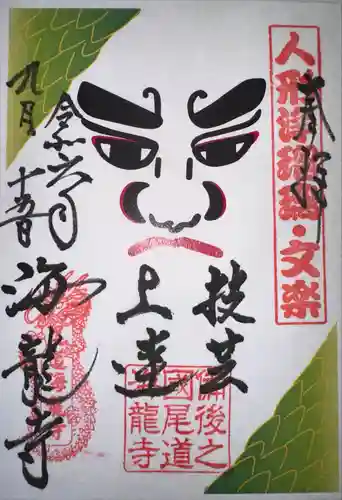 人形浄瑠璃・文楽
奉拝
技芸
上達
備後之
國尾道
海龍寺
令和六年
九月
十五日
海龍寺